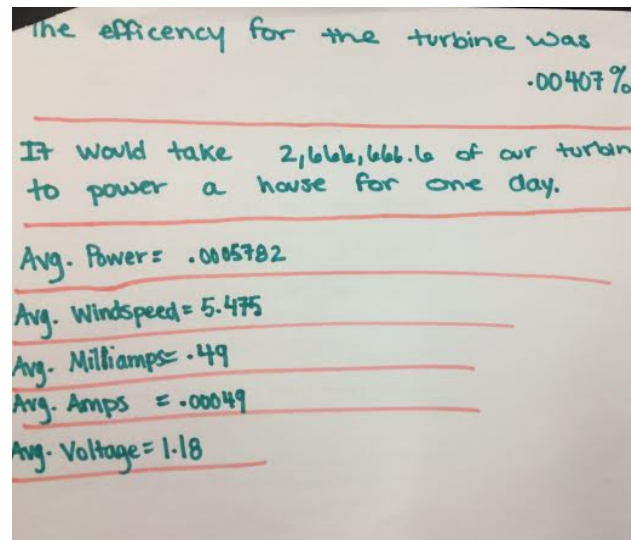 The efficency for the turbine was
.00407%
It would take 2,666,666.6 of our turbin
to power a house for one day.
Avg. Power= .0005782
Avg. Windspeed= 5.475
Avg. Milliamps= .49
Avg. Amps = .00049
Avg. Voltage= 1.18